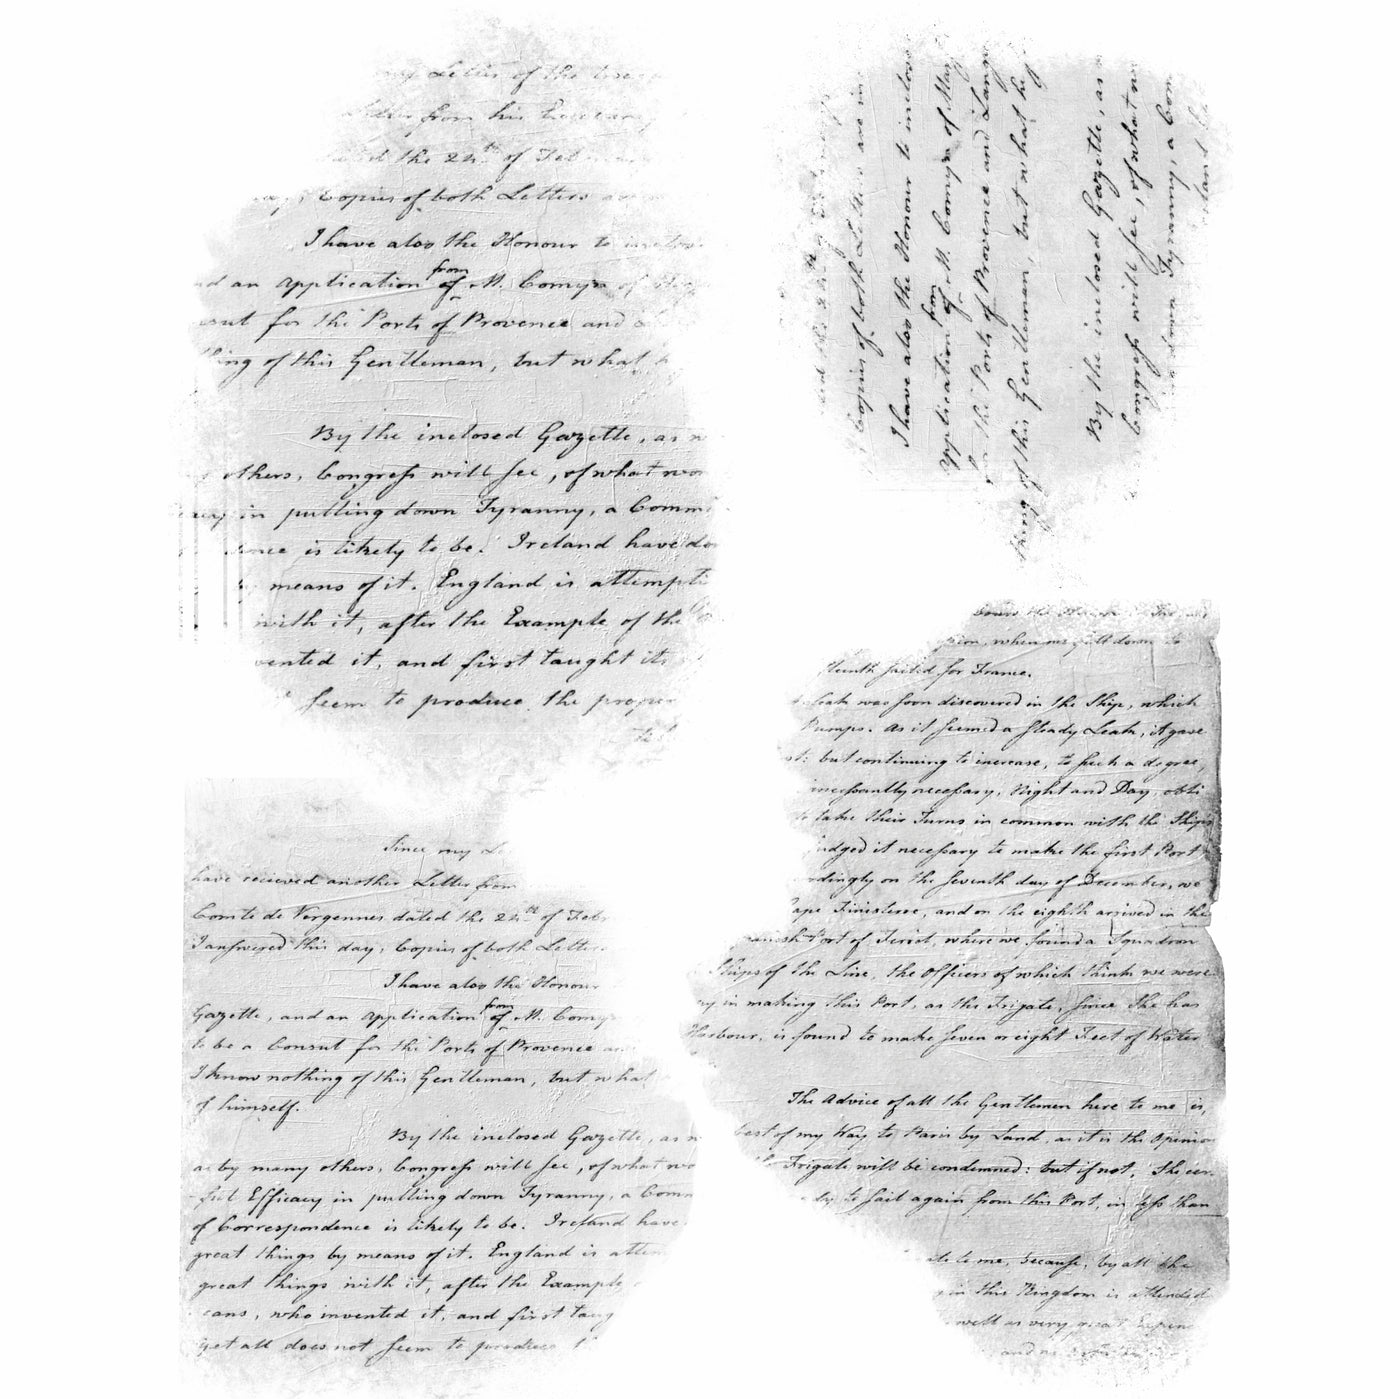 my Letter of the
Letter from his
the 24th of Feb
Copies of both Letters
I have also the Honour to inclose
nd an application from of M. Comyn of
for the Ports of Provence and
thing of this Gentleman, but what h
By the inclosed Gazette, as
others, Congress will see, of what won
in putting down Tyranny, a Commi
is likely to be. Ireland have do
means of it. England is attempti
with it, after the Example of the
vented it, and first taught its
seem to produce the proper
the 24th
Copies of both Letters are in
I have also the Honour to inclose
application from of M. Comyn of Mar
for the Ports of Provence and Lang
thing of this Gentleman, but what he
By the inclosed Gazette, as
Congress will see, of what
down Tyranny, a Com
eland
Since my Le
have recieved another Letter from
Comte de Vergennes dated the 24th of Febr
I answered this day, Copies of both Letters
I have also the Honour
Gazette, and an application from of M. Comyn
to be a Consul for the Ports of Provence an
I know nothing of this Gentleman, but what
of himself.
By the inclosed Gazette, as
as by many others, Congress will see, of what wo
-ful Efficacy in putting down Tyranny, a Comm
of Correspondence is likely to be. Ireland have
great things by means of it. England is attem
great things with it, after the Example
cans, who invented it, and first taug
yet all does not seem to produce t
when we fell down to
sailed for France.
Leak was soon discovered in the Ship, which
Pumps. As it seemed a steady Leak, it gave
st: but continuing to increase, to such a degree,
incessantly necessary, Night and Day, obli
to take their Turns in common with the Ships
judged it necessary to make the first Port
rdingly on the seventh day of December, we
Cape Finisterre, and on the eighth arrived in the
Spanish Port of Ferrol, where we found a Squadron
Ships of the Line, the Officers of which think we were
in making this Port, as the Frigate, since She has
Harbour, is found to make seven or eight Feet of Water
The Advice of all the Gentlemen here to me is,
best of my Way to Paris by Land, as it is the Opinion
Frigate will be condemned: but if not, She can
to sail again from this Port, in less than
to me, because, by all the
in this Kingdom is attended
well as very great Expence
and